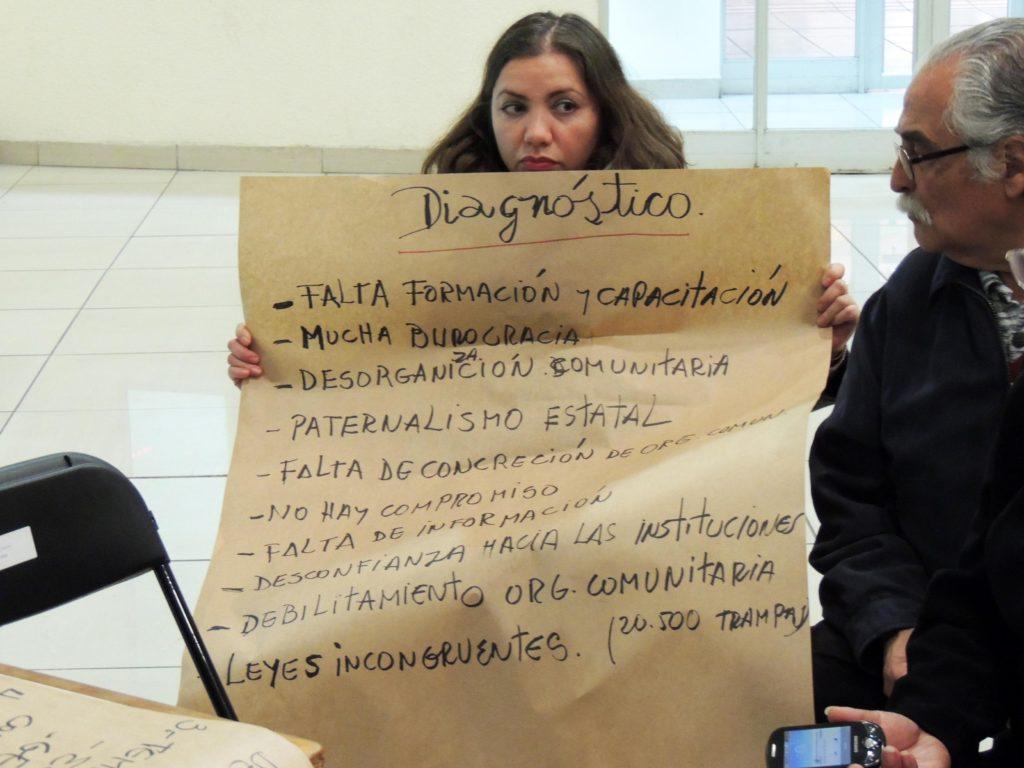 Diagnóstico.
- FALTA FORMACIÓN y CAPACITACIÓN
- MUCHA BUROCRACIA
- DESORGANIZACIÓN COMUNITARIA
- PATERNALISMO ESTATAL
- FALTA DE CONCRECIÓN DE ORG. COMUN.
- NO HAY COMPROMISO
- FALTA DE INFORMACIÓN
- DESCONFIANZA HACIA LAS INSTITUCIONES
- DEBILITAMIENTO ORG. COMUNITARIA
LEYES INCONGRUENTES. (20.500 TRAMPAS)